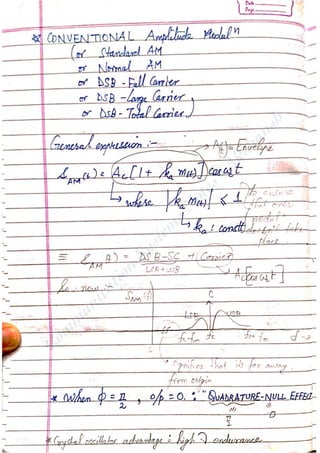 Date
Page
* CONVENTIONAL Amplitude Modulⁿ
(or Standard AM
or Normal AM
or DSB - Full Carrier
or DSB - Large Carrier
or DSB - Total Carrier)
General expression :-
A(t) = Envelope
S_AM(t) = Ac[1 + ka m(t)] cos ωct
where |ka m(t)| ≤ 1
to ensure
that over
modulⁿ
doesn't take
place
ka : constt
≡ S_AM(t) = DSB-SC + Carrier
LSB + USB
Ac[cos ωct]
So, now :-
S_AM(f)
C
LSB
USB
fc-fm fc fc+fm f
Signifies that its far away
from origin
* When φ = π/2, o/p = 0. : "QUADRATURE-NULL EFFECT"
π/2
0
* Crystal oscillator advantage : high endurance